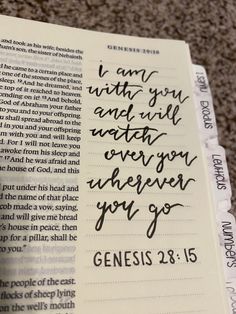 GENESIS 29:10
and took as his wife, besides
ham's son, the sister of Nebaioth
he came to a certain place and
one of the stones of the place,
top of it reached to heaven.
on it! ¹³And behold,
God of Abraham your father
to you and to your offspring
in you and your offspring
m with you and will keep
For I will not leave you
awoke from his sleep and
¹⁷And he was afraid and
house of God, and this
put under his head and
the name of that place
cob made a vow, saying,
and will give me bread
's house in peace, then
up for a pillar, shall be
the people of the east.
flocks of sheep lying
on the well's mouth
i am
with you
and will
watch
over you
wherever
you go
GENESIS 28:15
EXODUS
LEVITICUS
NUMBERS